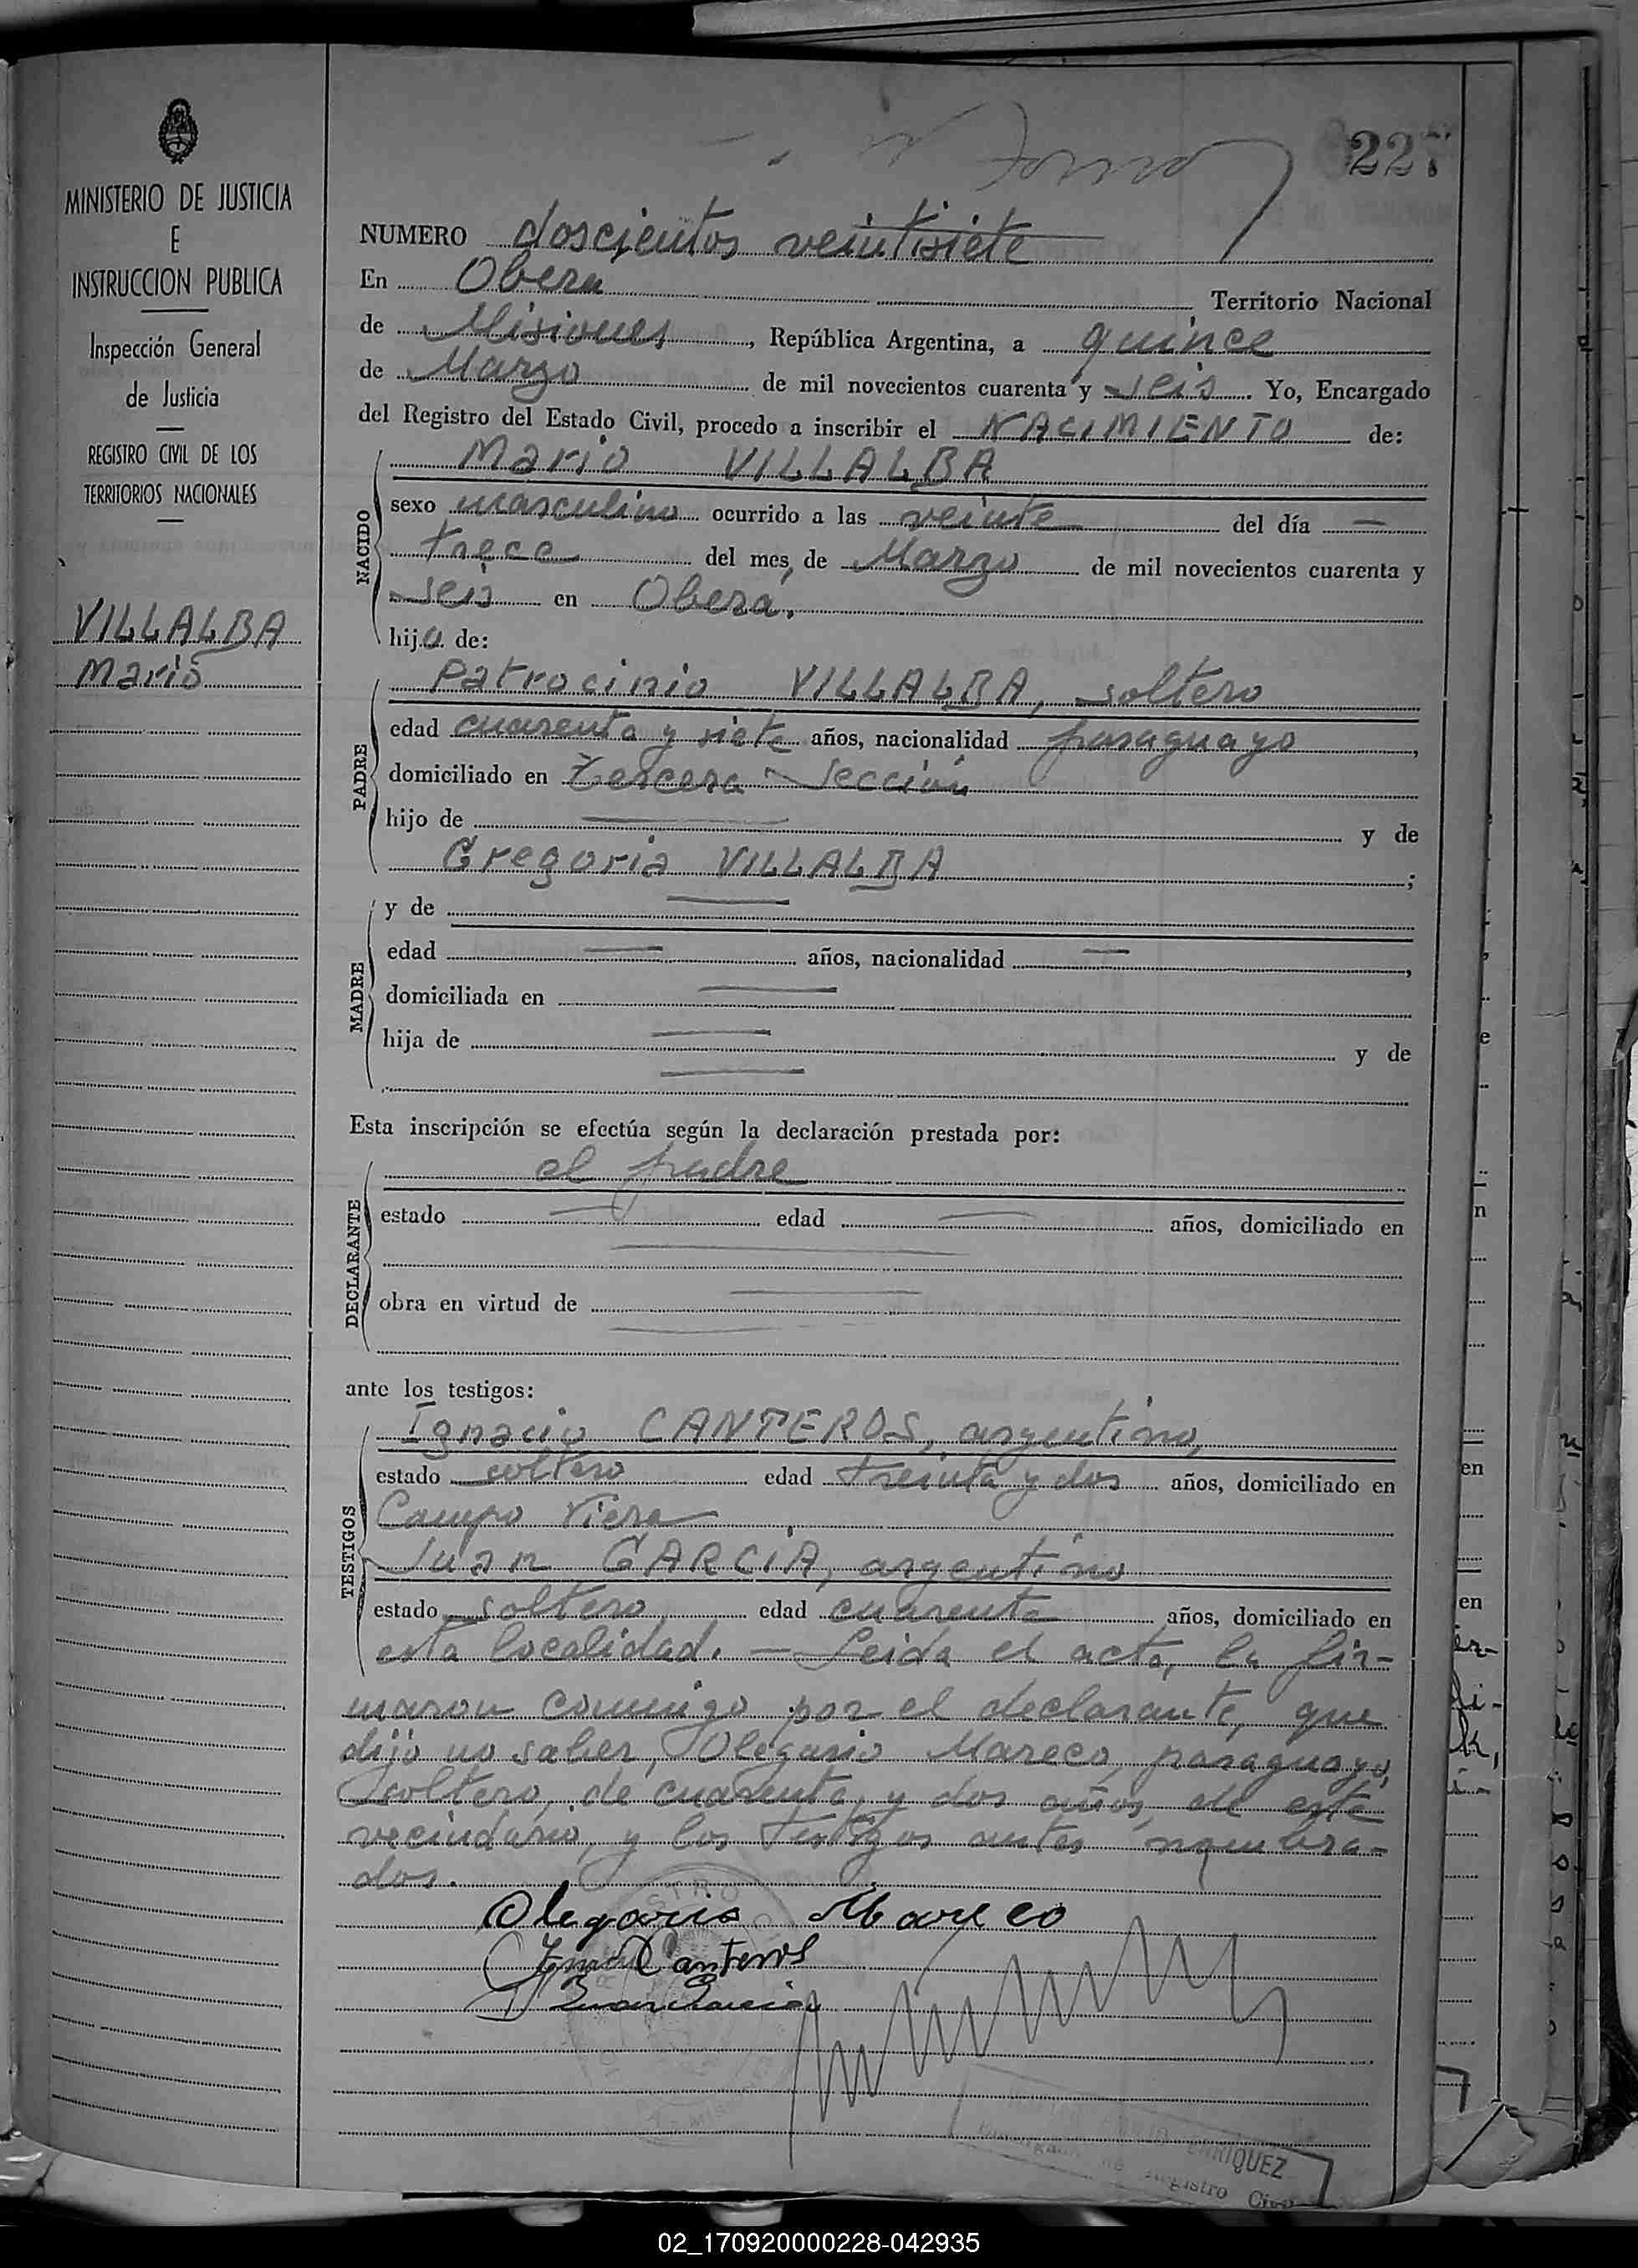 227
MINISTERIO DE JUSTICIA
E
INSTRUCCION PUBLICA
Inspección General
de Justicia
REGISTRO CIVIL DE LOS
TERRITORIOS NACIONALES
VILLALBA
Mario
NUMERO doscientos veintisiete
En Obera Territorio Nacional
de Misiones, República Argentina, a quince
de Marzo de mil novecientos cuarenta y seis. Yo, Encargado
del Registro del Estado Civil, procedo a inscribir el NACIMIENTO de:
NACIDO
Mario VILLALBA
sexo masculino ocurrido a las veinte del día —
trece del mes de Marzo de mil novecientos cuarenta y
seis en Oberá.
hijo de:
PADRE
Patrocinio VILLALBA, soltero
edad cuarenta y siete años, nacionalidad paraguayo,
domiciliado en tercera Sección
hijo de — y de
Gregoria VILLALBA;
MADRE
y de —
edad — años, nacionalidad —,
domiciliada en —
hija de — y de
—
Esta inscripción se efectúa según la declaración prestada por:
DECLARANTE
el padre
estado — edad — años, domiciliado en
—
obra en virtud de —
—
ante los testigos:
TESTIGOS
Ignacio CANTEROS, argentino,
estado soltero edad treinta y dos años, domiciliado en
Campo Viera
Juan GARCÍA, argentino
estado soltero edad cuarenta años, domiciliado en
esta localidad. — Leida el acta, la fir-
maron conmigo por el declarante, que
dijo no saber, Olegario Mareco, paraguayo,
soltero, de cuarenta y dos años, de este
vecindario, y los testigos antes nombra-
dos.
Olegario Mareco
Canteros
Juan Garcia
ENRIQUEZ
Registro Civil
02_170920000228-042935